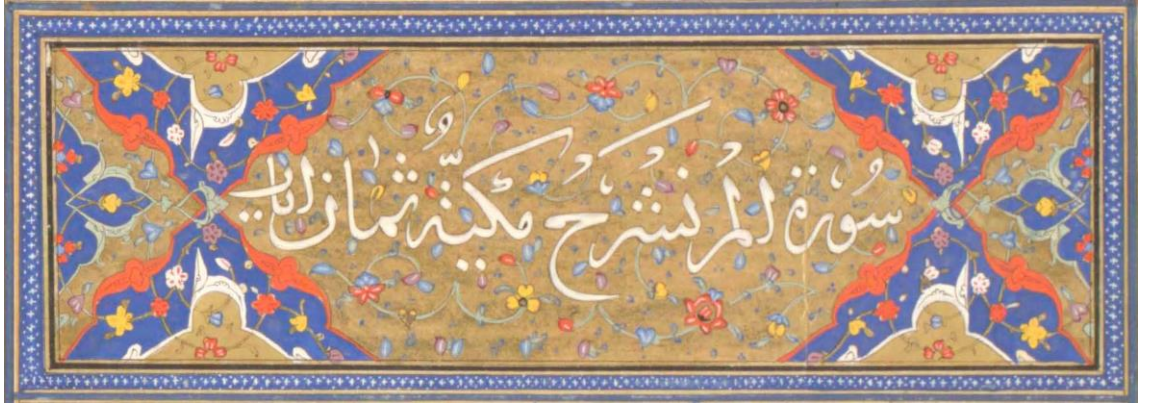 سُورَة الم نشرح مکیّة ثمان ایات